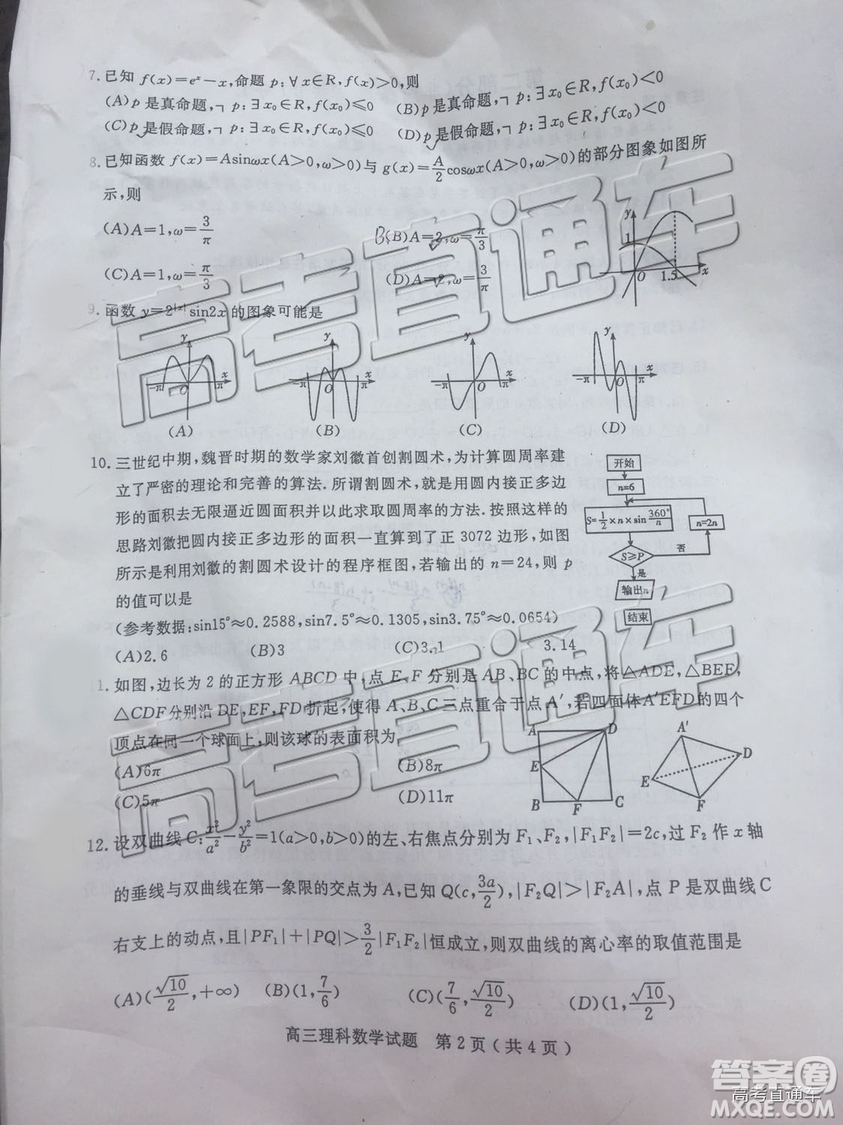 7.已知 f(x)=eˣ-x,命题 p:∀x∈R,f(x)>0,则
(A)p是真命题,¬p:∃x₀∈R,f(x₀)≤0 (B)p是真命题,¬p:∃x₀∈R,f(x₀)<0
(C)p是假命题,¬p:∃x₀∈R,f(x₀)≤0 (D)p是假命题,¬p:∃x₀∈R,f(x₀)<0
8.已知函数 f(x)=Asinωx(A>0,ω>0)与 g(x)=A/2cosωx(A>0,ω>0)的部分图象如图所
示,则
(A)A=1,ω=3/π B (B)A=2,ω=π/3
(C)A=1,ω=π/3 (D)A=2,ω=3/π
y 1 O 1.5 x
9.函数 y=2^|x|sin2x的图象可能是
y -π O π x y -π O π x y -π O π x y -π O π x
(A) (B) (C) (D)
10.三世纪中期,魏晋时期的数学家刘徽首创割圆术,为计算圆周率建
立了严密的理论和完善的算法.所谓割圆术,就是用圆内接正多边
形的面积去无限逼近圆面积并以此求取圆周率的方法.按照这样的
思路刘徽把圆内接正多边形的面积一直算到了正3072边形,如图
所示是利用刘徽的割圆术设计的程序框图,若输出的n=24,则p
的值可以是
(参考数据:sin15°≈0.2588,sin7.5°≈0.1305,sin3.75°≈0.0654)
(A)2.6 (B)3 (C)3.1 3.14
开始
n=6
S=1/2×n×sin360°/n
n=2n
S≥P
否
是
输出n
结束
1.如图,边长为2的正方形ABCD中,点E、F分别是AB、BC的中点,将△ADE,△BEF,
△CDF分别沿DE,EF,FD折起,使得A、B、C三点重合于点A′,若四面体A′EFD的四个
顶点在同一个球面上,则该球的表面积为
(A)6π (B)8π
(C)5π (D)11π
A D E B F C
A′ D E F
12.设双曲线C:x²/a²-y²/b²=1(a>0,b>0)的左、右焦点分别为F₁、F₂,|F₁F₂|=2c,过F₂作x轴
的垂线与双曲线在第一象限的交点为A,已知Q(c,3a/2),|F₂Q|>|F₂A|,点P是双曲线C
右支上的动点,且|PF₁|+|PQ|>3/2|F₁F₂|恒成立,则双曲线的离心率的取值范围是
(A)(√10/2,+∞) (B)(1,7/6) (C)(7/6,√10/2) (D)(1,√10/2)
高三理科数学试题 第2页(共4页)
高考直通车
高考直通车
答案圈
高考直通车
MXQE.COM